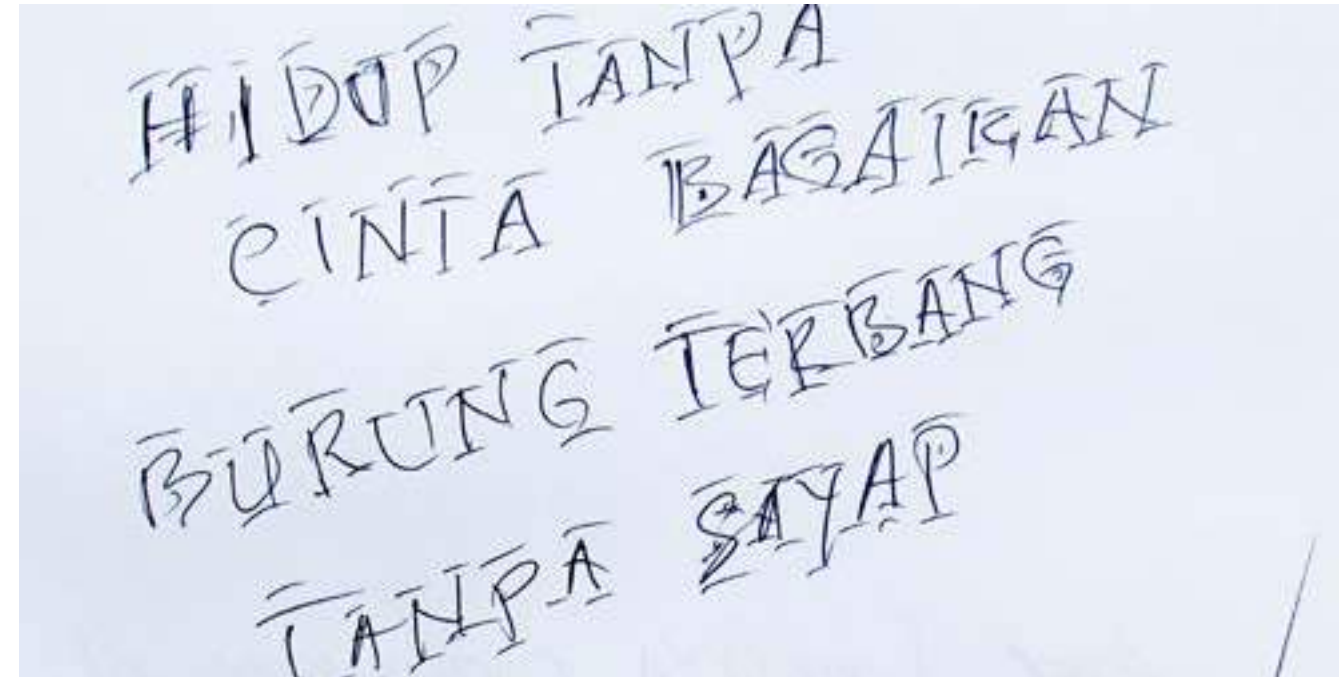 HIDUP TANPA
CINTA BAGAIKAN
BURUNG TERBANG
TANPA SAYAP